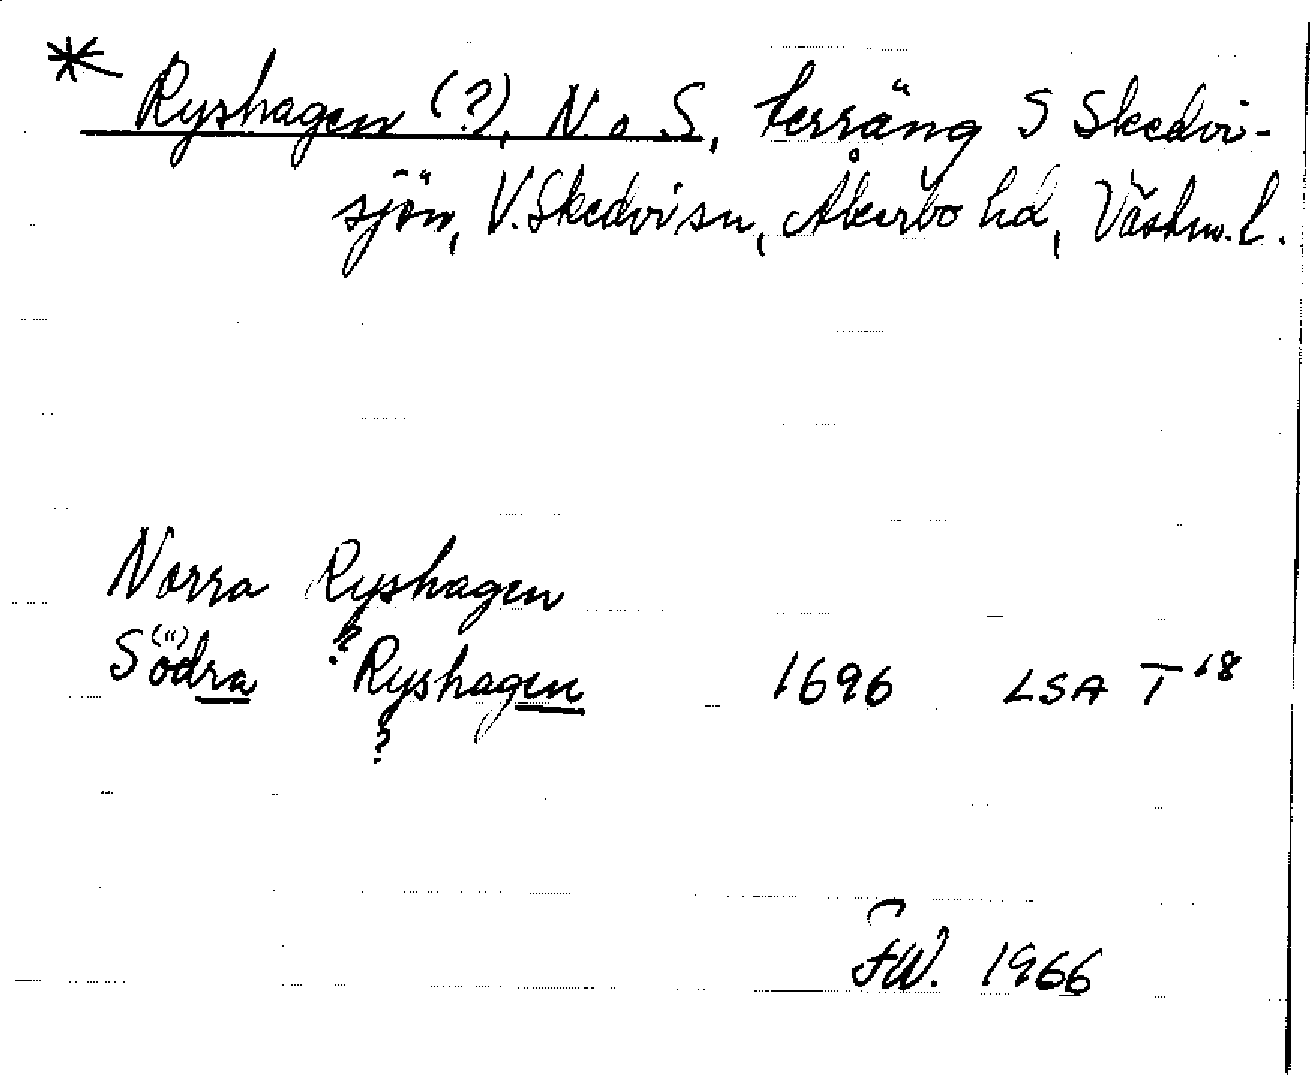 * Ryshagen (?), N o S, terräng S Skedvi-
sjön, V. Skedvi sn, Åkerbo hd, Västm. l.
Norra Ryshagen
?
Sö(")dra Ryshagen 1696 LSA T 18
?
FW. 1966